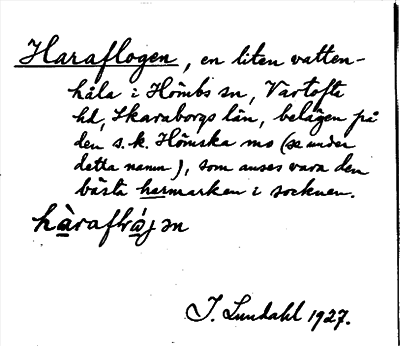 Haraflogen, en liten vatten-
håla i Hömbs sn, Vartofta
hd, Skaraborgs län, belägen på
den s.k. Hömska mo (se under
detta namn), som anses vara den
bästa harmarken i socknen.
J. Lundahl 1927.